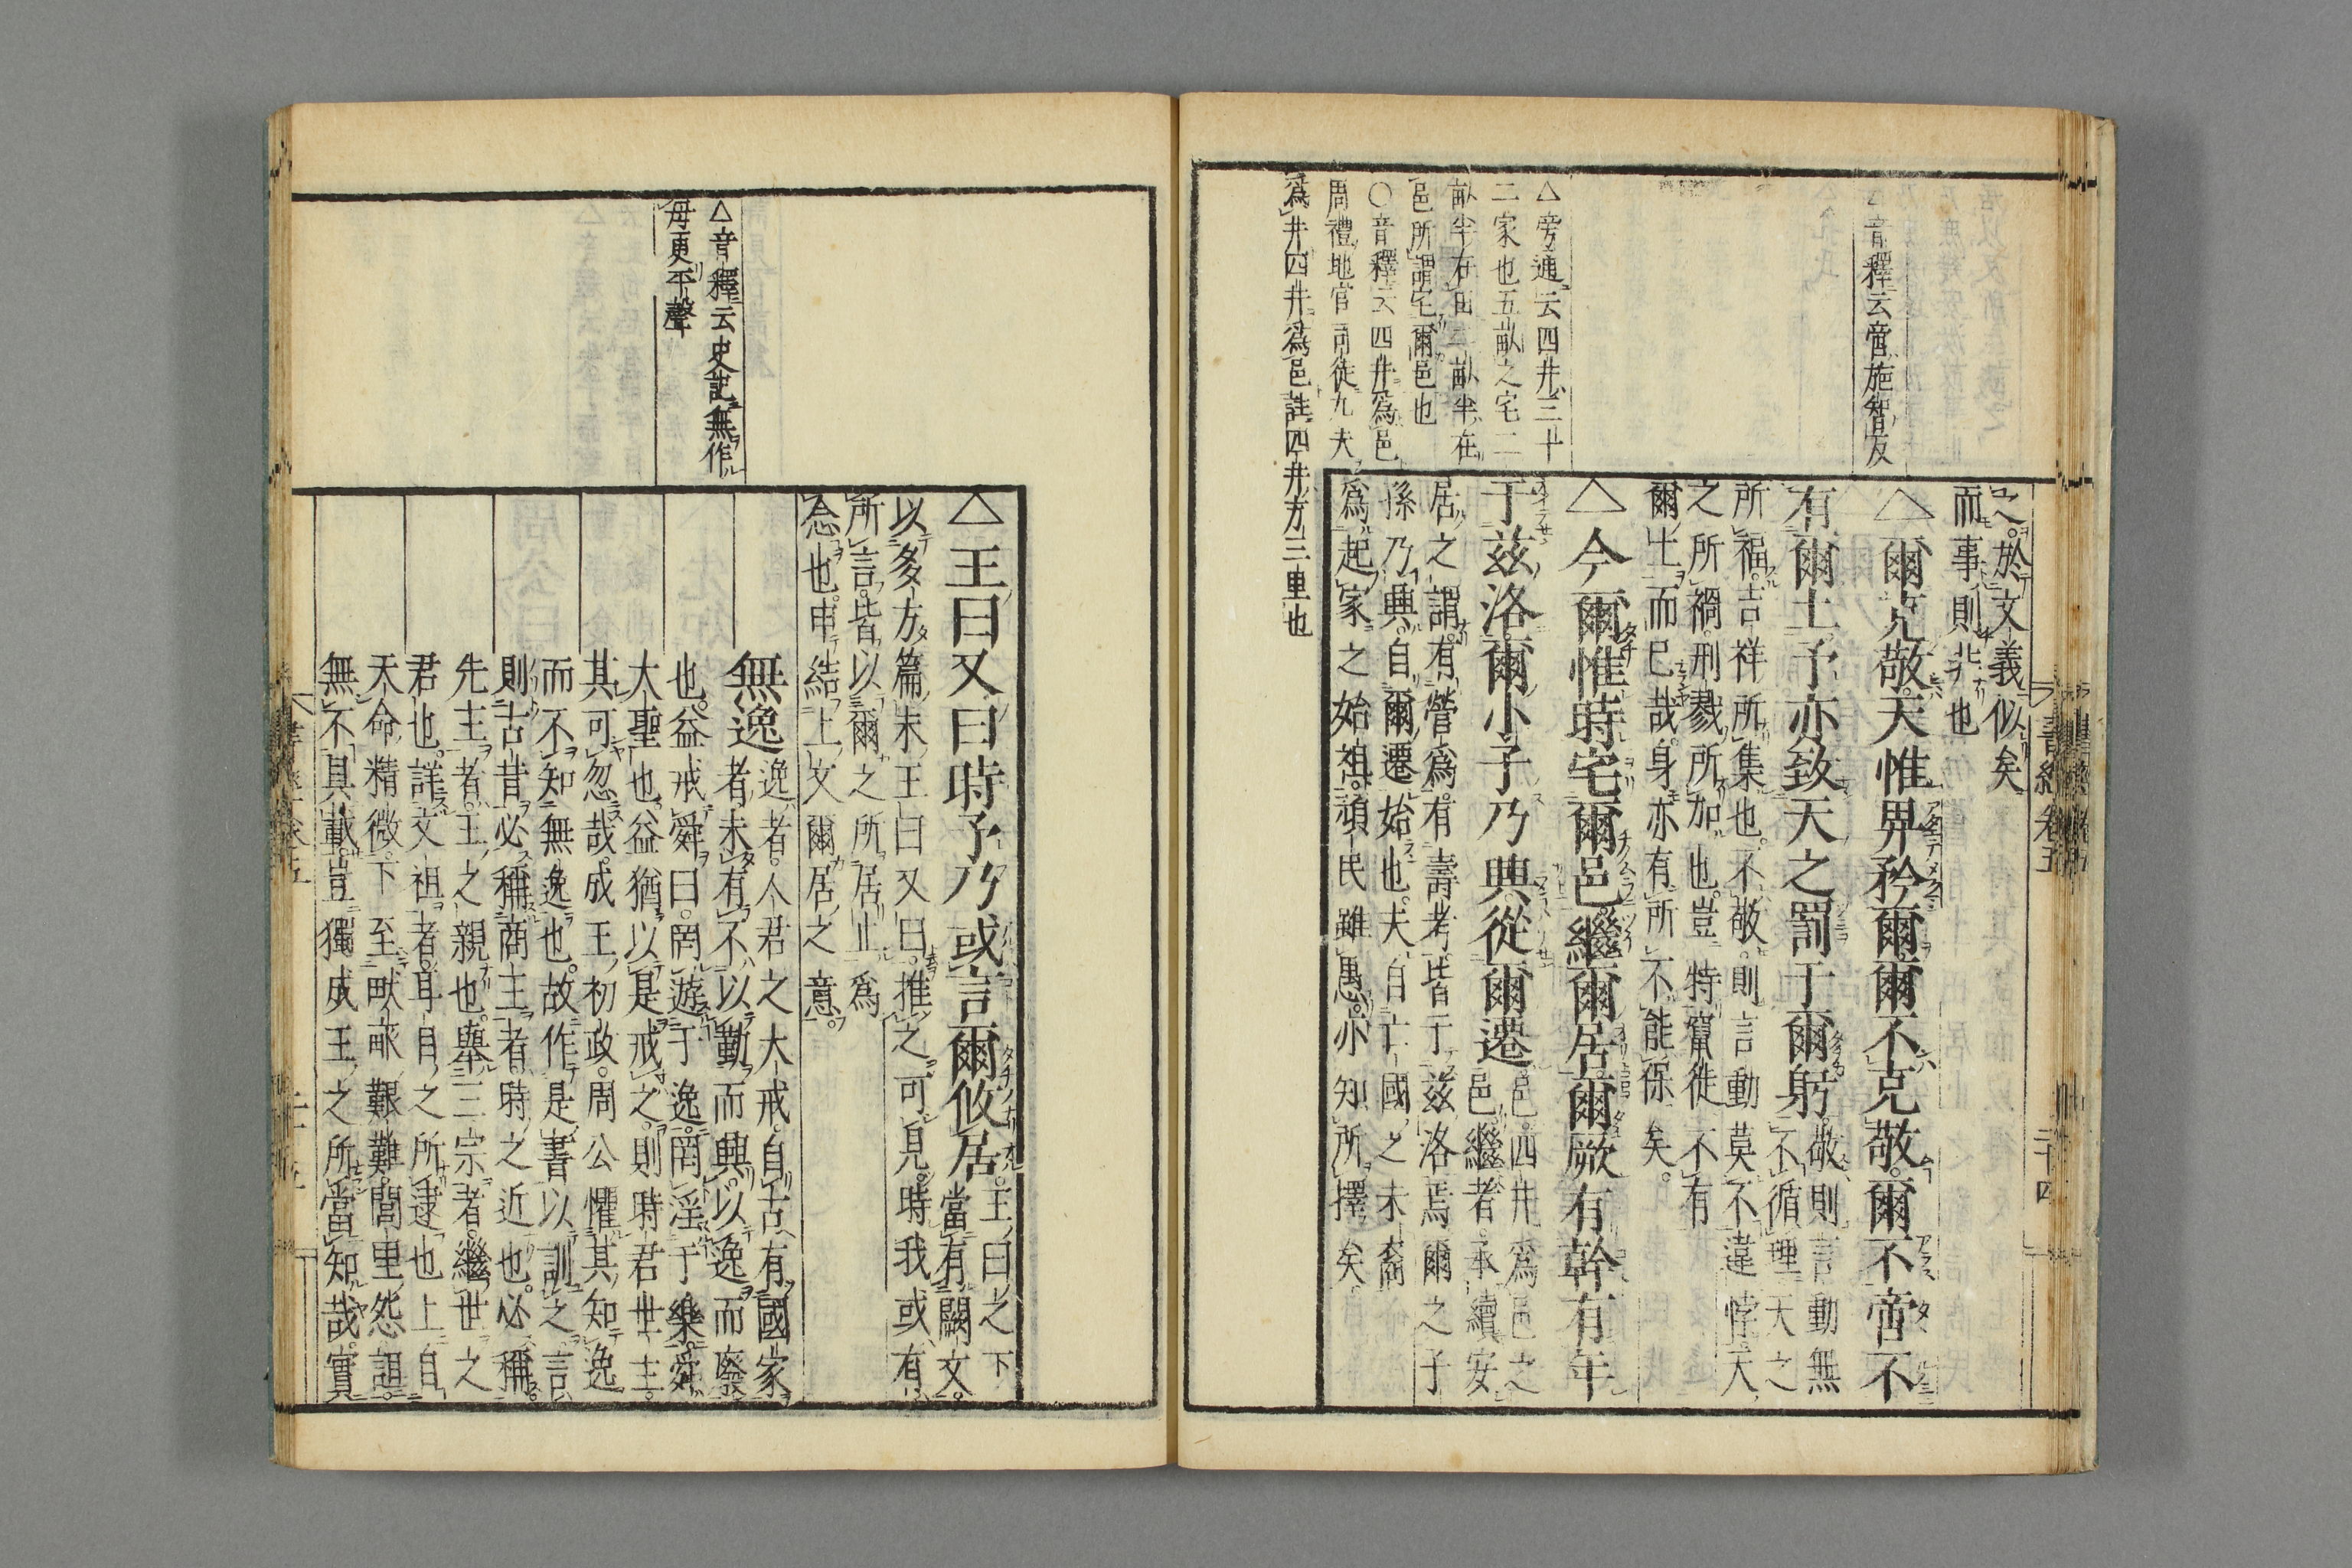 之於文義似矣
而事則非也
△爾克敬天惟畀矜爾爾不克敬爾不啻不
有爾土予亦致天之罰于爾躬敬則言動無
不循理天之
所福吉祥所集也不敬則言動莫不違悖天
之所禍刑戮所加也豈特竄徙不有
爾土而已哉身亦有所不能保矣
△今爾惟時宅爾邑繼爾居爾厥有幹有年
于茲洛爾小子乃興從爾遷邑四井為邑之
邑繼者承續安
居之謂有營為有壽考皆于茲洛焉爾之子
孫乃興自爾遷始也夫自亡國之末裔
為起家之始祖頑民雖愚亦知所擇矣
△音釋云啻施智反
△旁通云四井三十
二家也五畝之宅二
畝半在田二畝半在
邑所謂宅爾邑也
○音釋云四井為邑
周禮地官司徒九夫
為井四井為邑註四井方二里也
書經卷五
二十四
△王曰又曰時予乃或言爾攸居王曰之下
當有闕文
以多方篇末王曰又曰推之可見時我或有
所言皆以爾之所居止為
念也申結上文爾居之意
無逸逸者人君之大戒自古有國家
者未有不以勤而興以逸而廢
也益戒舜曰罔遊于逸罔淫于樂舜
大聖也益猶以是戒之則時君世主
其可忽哉成王初政周公懼其知逸
而不知無逸也故作是書以訓之言
則古昔必稱商王者時之近也必稱
先王者王之親也舉三宗者繼世之
君也詳文祖者耳目之所逮也上自
天命精微下至畎畝艱難閭里怨詛
無不具載豈獨成王之所當知哉實
△音釋云史記無作
毋更平聲